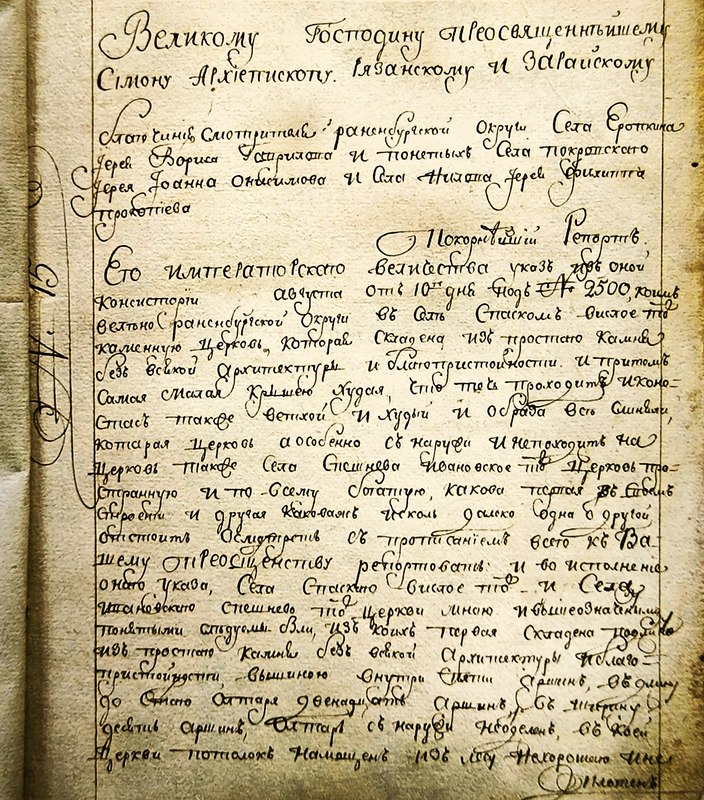 Великому Господину Преосвященнѣйшему
Сімону Архіепископу Рязанскому и Зарайскому
благочинїя Смотрителя раненбургской Округи Села Еропкина
Іерея Бориса Гаврилова и понетыхъ Села покровскаго
Іерея Іоанна Онисимова и Села Нилова Іерея Филиппа
прокопіева
Покорнѣйшій Репортъ.
Его императорскаго величества указъ изъ оной
Консисторїи августа отъ 10го дня подъ № 2500, коимъ
велѣно раненбургской Округи въ Селѣ Спаскомъ вислое тожъ
каменную Церковь, которая складена изъ простаго камня
безъ всякой Архитектуры и благопристойности. и притомъ
самая малая Крышею худая, что течь проходитъ иконо-
стасъ также ветхой и худый и образа всѣ слиняли,
которая Церковь а особенно съ наружи и непоходитъ на
Церковь также Села Спешнева Ивановское тожъ Церковь про-
странную и по всему богатую, какова первая въ своемъ
строеніи и другая каковажъ и сколь далеко одна о другой
отстоитъ Осмотреть съ прописаніемъ всего къ Ва-
шему преосщенству репортовать: и во исполненіе
онаго указа, Села Спаскаго вислое тожъ и Села
ивановскаго спешнево тожъ Церкви мною и вышеозначенными
понятыми следуемы были, изъ коихъ первая складена
изъ простаго камня безъ всякой Архитектуры и благо-
пристойности вышиною внутри аршинъ, въ длину
до Олтаря двенадцать аршинъ, въ ширину
десять аршинъ, Олтарь съ наружи неоделенъ, въ коей
Церкви потолокъ намощенъ изъ лесу нехорошею и не
плотенъ
№ 15